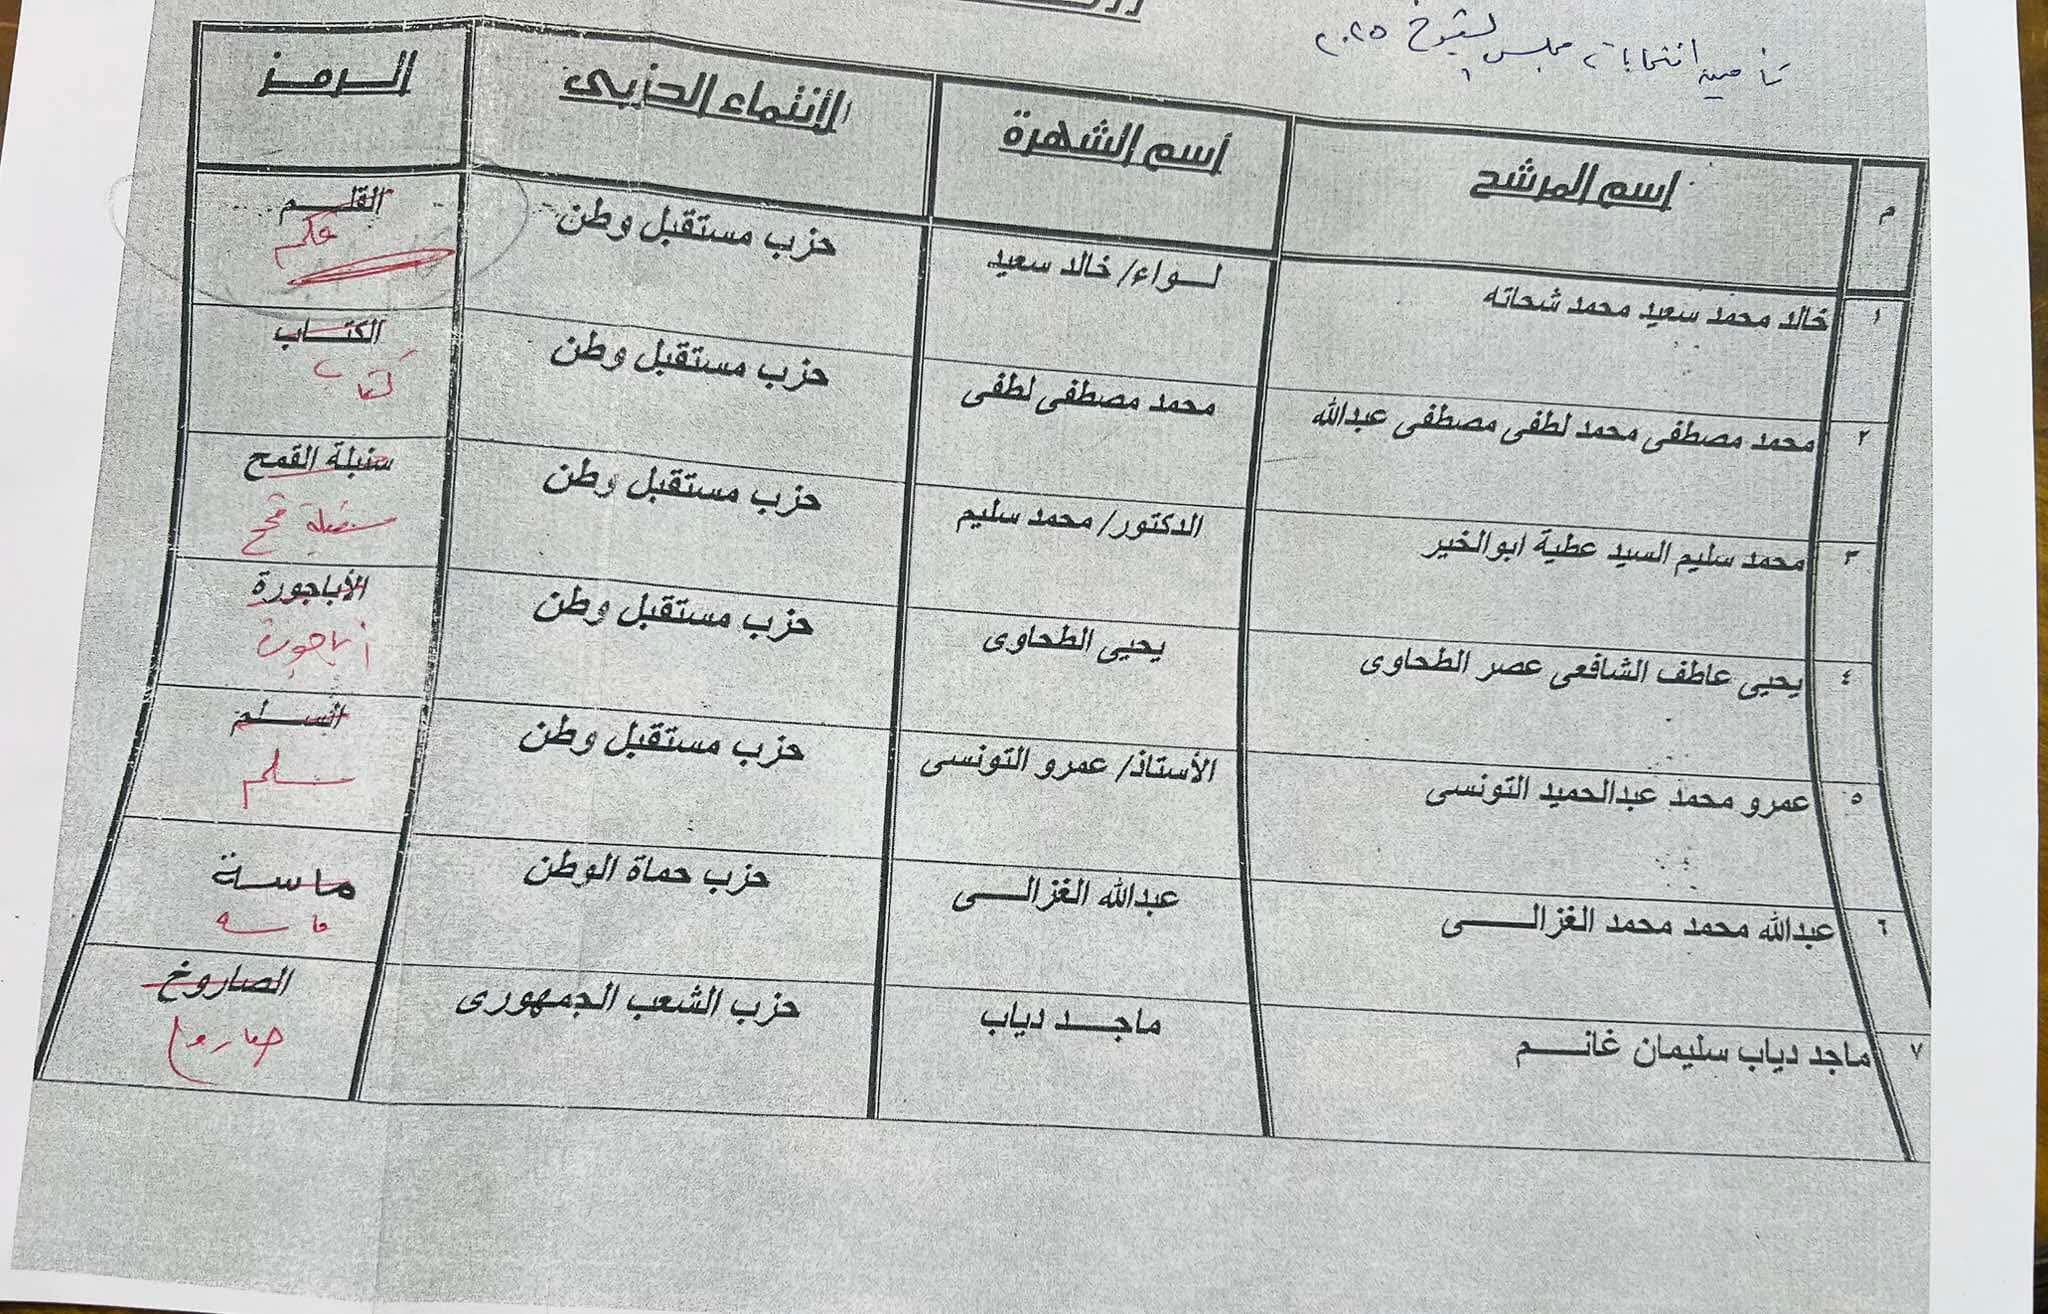 تأمين انتخابات مجلس الشيوخ ٢٠٢٥
م اسم المرشح أسم الشهرة الأنتماء الحزبى الرمز
١ خالد محمد سعيد محمد شحاته لـواء/ خالد سعيد حزب مستقبل وطن القلم
٢ محمد مصطفى محمد لطفى مصطفى عبدالله محمد مصطفى لطفى حزب مستقبل وطن الكتاب
كتاب
٣ محمد سليم السيد عطية ابوالخير الدكتور/ محمد سليم حزب مستقبل وطن سنبلة القمح
سنبلة قمح
٤ يحيى عاطف الشافعى عصر الطحاوى يحيى الطحاوى حزب مستقبل وطن الأباجورة
أباجورة
٥ عمرو محمد عبدالحميد التونسى الأستاذ/ عمرو التونسى حزب مستقبل وطن السلم
سلم
٦ عبدالله محمد محمد الغزالى عبدالله الغزالى حزب حماة الوطن ماسة
ماسه
٧ ماجد دياب سليمان غانم ماجد دياب حزب الشعب الجمهورى الصاروخ
صاروخ